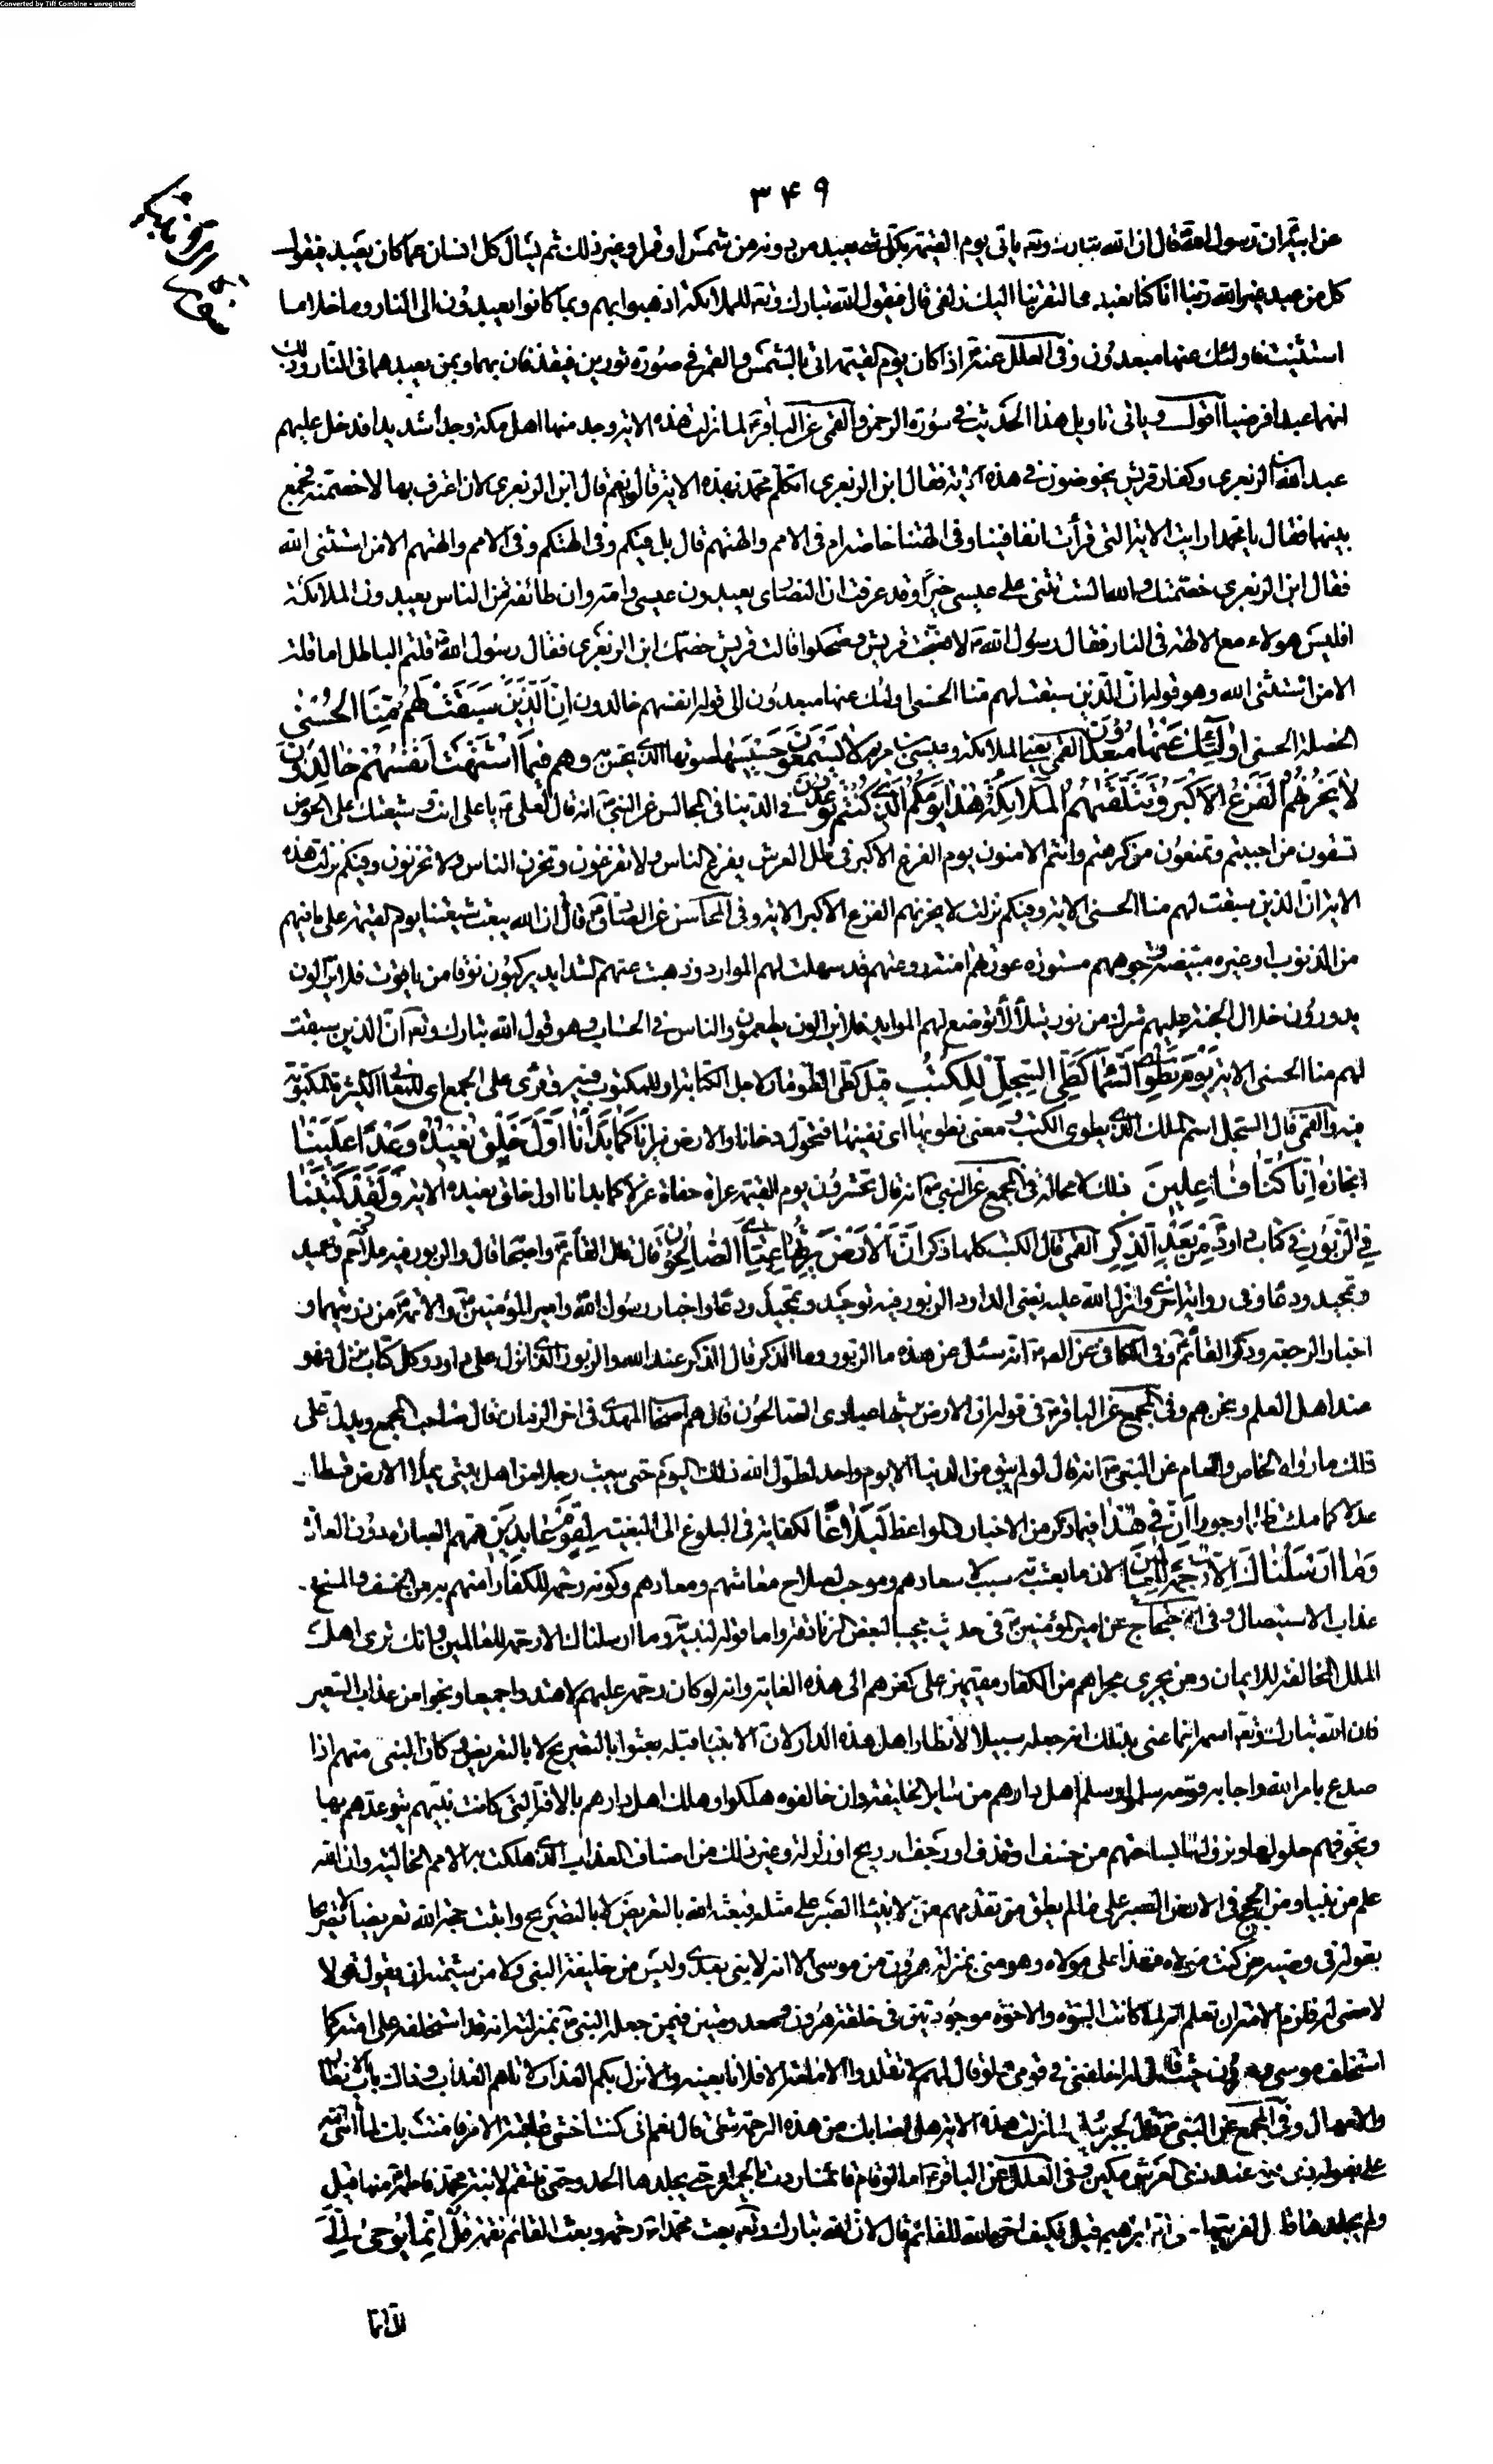 Converted by Tiff Combine - unregistered
۳۴۹
عن ابيه ان رسول الله قال ان الله تبارك وتعه ياتى يوم القيمة بكل شئ يعبد من دونه من شمس او قمر او غير ذلك ثم يسال كل انسان عما كان يعبد فيقول
كل من عبد غير الله ربنا انا كنا نعبدها لتقربنا اليك زلفى قال فيقول الله تبارك وتعه للملائكة اذهبوا بهم وبما كانوا يعبدون الى النار وما خلا ما
استثنيت فاولئك عنها مبعدون وفى العلل عنه اذا كان يوم القيمة اتى بالشمس والقمر فى صورة ثورين فيقذفان بهما وبمن يعبدهما فى النار وذلك
انهما عبدا فرضيا اقول وياتى تاويل هذا الحديث فى سورة الرحمن والقمى عن الباقر لما نزلت هذه الاية وجد منها اهل مكة وجدا شديدا فدخل عليهم
عبد الله بن الزبعرى وكفار قريش يخوضون فى هذه الاية فقال ابن الزبعرى اتكلم محمد بهذه الاية قالوا نعم قال ابن الزبعرى لان اعترف بها لاخصمنه فجمع
بينهما فقال يا محمد ارايت الاية التى قرأت انفا فينا وفى الهتنا خاصة ام فى الامم والهتهم قال بل فيكم وفى الهتكم وفى الامم والهتهم الا من استثنى الله
فقال ابن الزبعرى خصمتك والله الست تثنى على عيسى خيرا وقد عرفت ان النصارى يعبدون عيسى وامه وان طائفة من الناس يعبدون الملائكة
افليس هولاء مع الالهة فى النار فقال رسول الله لا فضجت قريش وضحكوا قالت قريش خصمك ابن الزبعرى فقال رسول الله قلتم الباطل اما قلت
الا من استثنى الله وهو قوله ان الذين سبقت لهم منا الحسنى اولئك عنها مبعدون الى قوله انفسهم خالدون اِنَّ الَّذينَ سَبَقَتْ لَهُمْ مِنَّا الْحُسْنى
الخصلة الحسنى اُولٰئِكَ عَنْها مُبْعَدُونَ القمى يعنى الملائكة وعيسى بن مريم لا يَسْمَعُونَ حَسيسَها صوتها الذى يحس به وهم فيمَا اشْتَهَتْ اَنْفُسُهُمْ خالِدُونَ
لا يَحْزُنُهُمُ الْفَزَعُ الْاَكْبَرُ وَتَتَلَقّيهُمُ الْمَلائِكَةُ هٰذا يَوْمُكُمُ الَّذى كُنْتُمْ تُوعَدُونَ فى الدنيا فى المجالس عن النبى انه قال لعلى يا على انت وشيعتك على الحوض
تسقون من احببتم وتمنعون من كرهتم وانتم الامنون يوم الفزع الاكبر فى ظل العرش يفزع الناس ولا تفزعون وتحزن الناس ولا تحزنون وفيكم نزلت هذه
الاية ان الذين سبقت لهم منا الحسنى الاية وفيكم نزلت لا يحزنهم الفزع الاكبر الاية وفى المحاسن عن الصادق قال ان الله يبعث شيعتنا يوم القيمة على ما فيهم
من الذنوب او غيره مبيضة وجوههم مستورة عوراتهم امنة روعتهم قد سهلت لهم الموارد وذهبت عنهم الشدايد يركبون نوقا من ياقوت فلا يزالون
يدورون خلال الجنة عليهم شرك من نور يتلألأ توضع لهم الموايد فلا يزالون يطعمون والناس فى الحساب وهو قول الله تبارك وتعه ان الذين سبقت
لهم منا الحسنى الاية يَوْمَ نَطْوِى السَّماءَ كَطَىِّ السِّجِلِّ لِلْكُتُبِ قيل كطى الطومار لاجل الكتابة او للمكتوب فيه وقرى على الجمع اى للمعانى الكثيرة المكتوبة
فيه والقمى قال السجل اسم الملك الذى يطوى الكتب ومعنى نطويها اى نفنيها فتحول دخانا والارض نيرانا كَما بَدَأْنا اَوَّلَ خَلْقٍ نُعيدُهُ وَعْدًا عَلَيْنا
انجازه اِنَّا كُنَّا فاعِلينَ ذلك لا محالة فى المجمع عن النبى انه قال تحشرون يوم القيمة عراة حفاة عزلا كما بدانا اول خلق نعيده الاية وَلَقَدْ كَتَبْنا
فِى الزَّبُورِ فى كتاب داود مِنْ بَعْدِ الذِّكْرِ القمى قال الكتب كلها ذكر اَنَّ الْاَرْضَ يَرِثُها عِبادِىَ الصَّالِحُونَ قال قال القائم واصحابه قال والزبور فيه ملاحم وتحميد
وتمجيد ودعاء وفى رواية اخرى وانزل الله عليه يعنى الداود الزبور فيه توحيد وتمجيد ودعاء واخبار رسول الله وامير المؤمنين والائمة من ذريتهما و
اخبار الرجعة وذكر القائم وفى الكافى عن الصه انه سئل عن هذه ما الزبور وما الذكر قال الذكر عند الله والزبور الذى انزل على داود وكل كتاب منزل فهو
عند اهل العلم ونحن هم وفى المجمع عن الباقر فى قوله ان الارض يرثها عبادى الصالحون قال هم اصحاب المهدى فى اخر الزمان قال صاحب المجمع ويدل على
ذلك ما رواه الخاص والعام عن النبى انه قال لو لم يبق من الدنيا الا يوم واحد لطول الله ذلك اليوم حتى يبعث رجلا من اهل بيتى يملأ الارض قسطا
عدلا كما ملئت ظلما وجورا اِنَّ فى هٰذا فيما ذكر من الاخبار والمواعظ لَبَلاغًا لكفاية فى البلوغ الى البغية لِقَوْمٍ عابِدينَ همهم العبادة دون العادة
وَما اَرْسَلْناكَ اِلَّا رَحْمَةً لِلْعالَمينَ لان ما بعثت به سببا لاسعادهم وموجب لصلاح معاشهم ومعادهم وكونه رحمة للكفار امنهم به من الخسف والمسخ و
عذاب الاستيصال وفى الاحتجاج عن امير المؤمنين فى حديث مجيبا لبعض الزنادقة واما قوله لنبيه وما ارسلناك الا رحمة للعالمين وانك ترى اهل
الملل المخالفة للايمان ومن يجرى مجراهم من الكفار مقيمين على كفرهم الى هذه الغاية وانه لو كان رحمة عليهم لاهتدوا جميعا ونجوا من عذاب السعير
فان الله تبارك وتعه اسمه انما عنى بذلك انه جعله سبيلا لانظار اهل هذه الدار لان الانبياء قبله بعثوا بالتصريح لا بالتعريض وكان النبى منهم اذا
صدع بامر الله واجابه قومه سلموا وسلم اهل دارهم من ساير الخليفة وان خالفوه هلكوا وهلك اهل دارهم بالافة التى كانت نبيهم يتوعدهم بها
ويخوفهم حلولها ونزولها بساحتهم من خسف او قذف او رجف او ريح او زلزلة وغير ذلك من اصناف العذاب الذى هلكت به الامم الخالية وان الله
علم من نبينا ومن الحجج فى الارض الصبر على ما لم يطق من تقدمهم من الانبياء الصبر على مثله فبعثه الله بالتعريض لا بالتصريح واثبت حجة الله تعريضا لا تصريحا
بقوله فى وصيه من كنت مولاه فهذا على مولاه وهو منى بمنزلة هرون من موسى الا انه لا نبى بعدى وليس من خليفة النبى ولا من شيمته ان يقول قولا
لا معنى له فلزم الامة ان تعلم انه لما كانت النبوة والاخوة موجودتين فى خلقة هرون ومعدومتين فيمن جعله النبى بمنزلته انه قد استخلفه على امته كما
استخلف موسى هرون حيث قال له اخلفنى فى قومى ولو قال لهم لا تقلدوا الامامة الا فلانا بعينه والا نزل بكم العذاب لاتاهم العذاب وزال باب الانظار
والامهال وفى المجمع عن النبى قال لجبرئيل لما نزلت هذه الاية هل اصابك من هذه الرحمة شئ قال نعم انى كنت اخشى عاقبة الامر فامنت بك لما اثنى الله
على بقوله ذى قوة عند ذى العرش مكين وفى العلل عن الباقر اما لو قام قائمنا ردت الحميراء حتى يجلدها الحد وحتى ينتقم لابنة محمد فاطمة منها قيل
ولم يجلدها قال لفريتها على ام ابرهيم قيل فكيف اخره الله للقائم قال لان الله تبارك وتعه بعث محمدا رحمة وبعث القائم نقمة قُلْ اِنَّما يُوحى اِلَىَّ